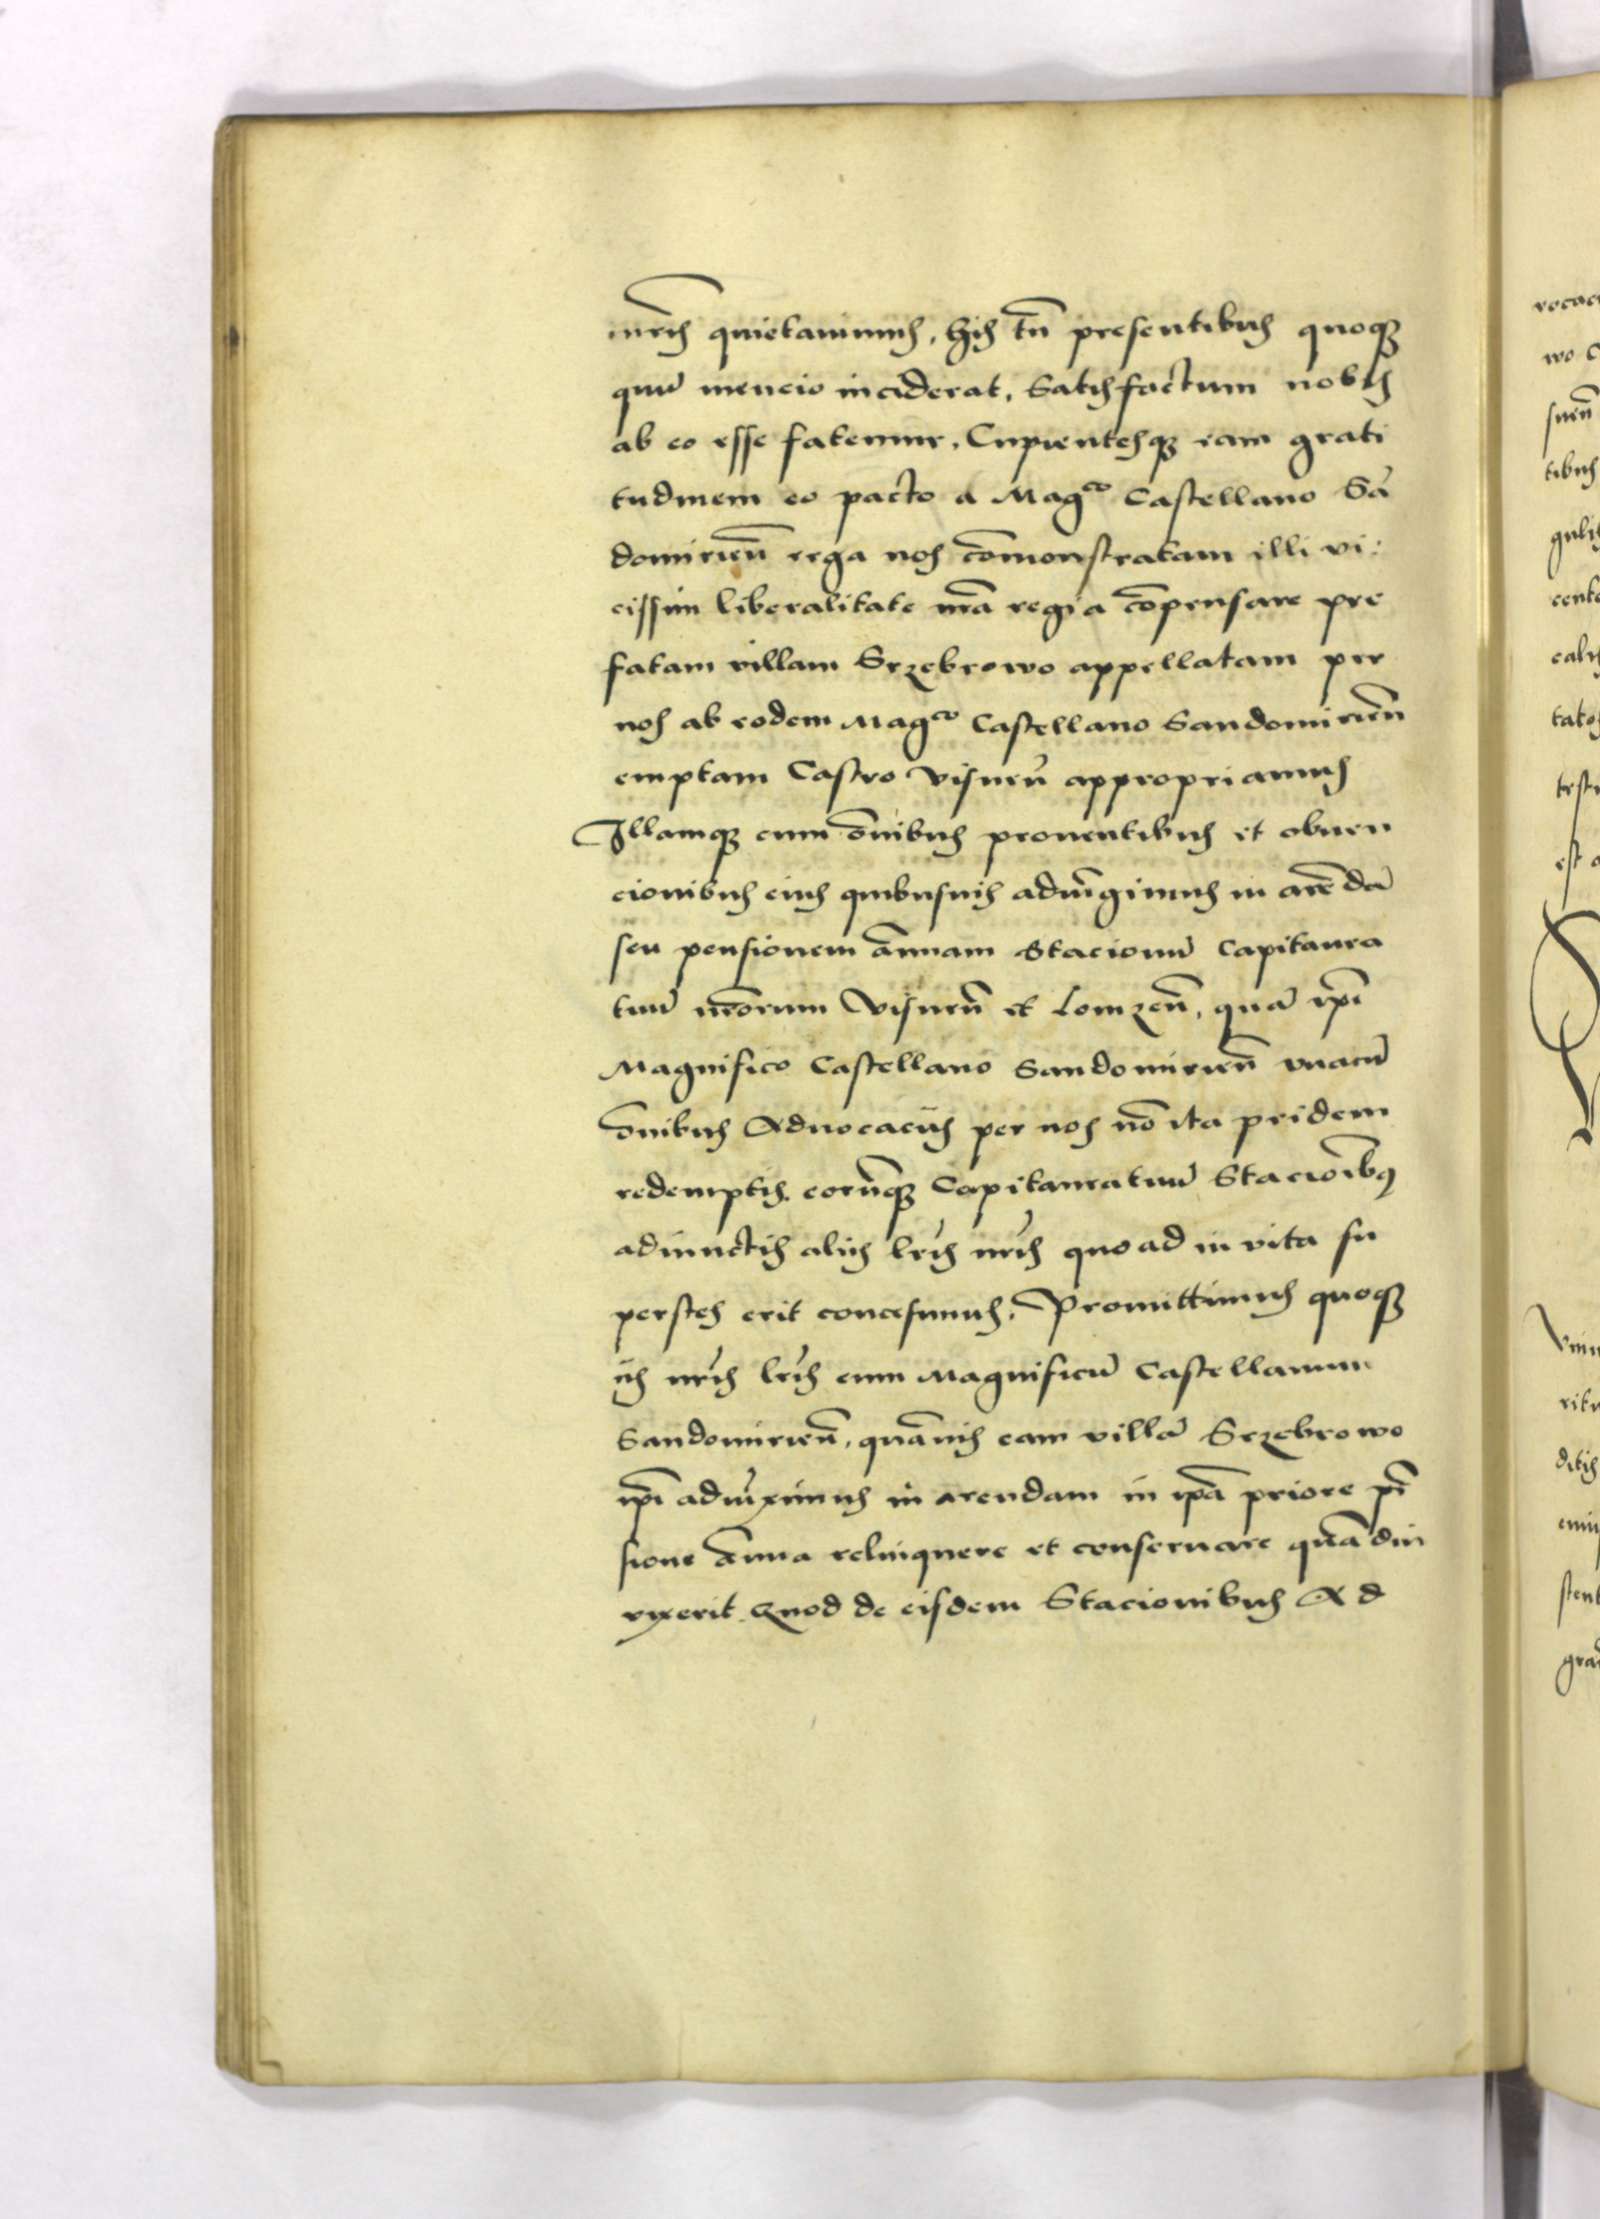 nr̃is quietauimus, his tñ presentibus quoq3
quũ mencio inciderat, Satisfactum nobis
ab eo esse fatemur, Cupientesq3 eam grati
tudinem eo pacto a Mag͠co Castellano Sã
domirieñ erga nos cõmonstratam illi vi:
cissim liberalitate nrã regia cõpensare pre
fatam villam Srzebrowo appellatam per
nos ab eodem Mag͠co Castellano Sandomirieñ
emptam Castro Visneñ appropriamus
Illamq3 cum õnibus prouentibus et obuen
cionibus eius quibusuis adiũgimus in arẽdã
seu pensionem ãnuam Stacionũ Capitanea
tuũ nr̃orum Visneñ et Lomzeñ, quã ip̃i
Magnifico Castellano Sandomirieñ vnacũ
õnibus Aduocaciis per nos nõ ita pridem
redemptis, eorũq3 Capitaneatuũ Stacioĩbus
adiunctis aliis lr̃is nr̃is quoad in vita su
perstes erit concessimus, Promittimus quoq3
iis nr̃is lr̃is eum Magnificũ Castellanum
Sandomirieñ, quãuis eam villã Srzebrowo
ip̃i adiũximus in arendam in ip̃a priore pẽ
sione ãnua relinquere et conseruare quãdiu
vixerit. Quod de eisdem Stacionibus Ad